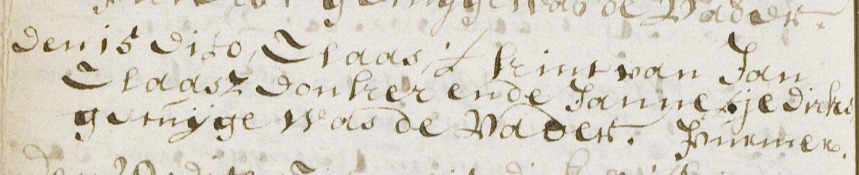 getuijge was de Vader.
den 15 dito, Claas, 't kint van Jan
Claasz Donker ende Jannetje dirks
getuijge was de Vader. Purmer.